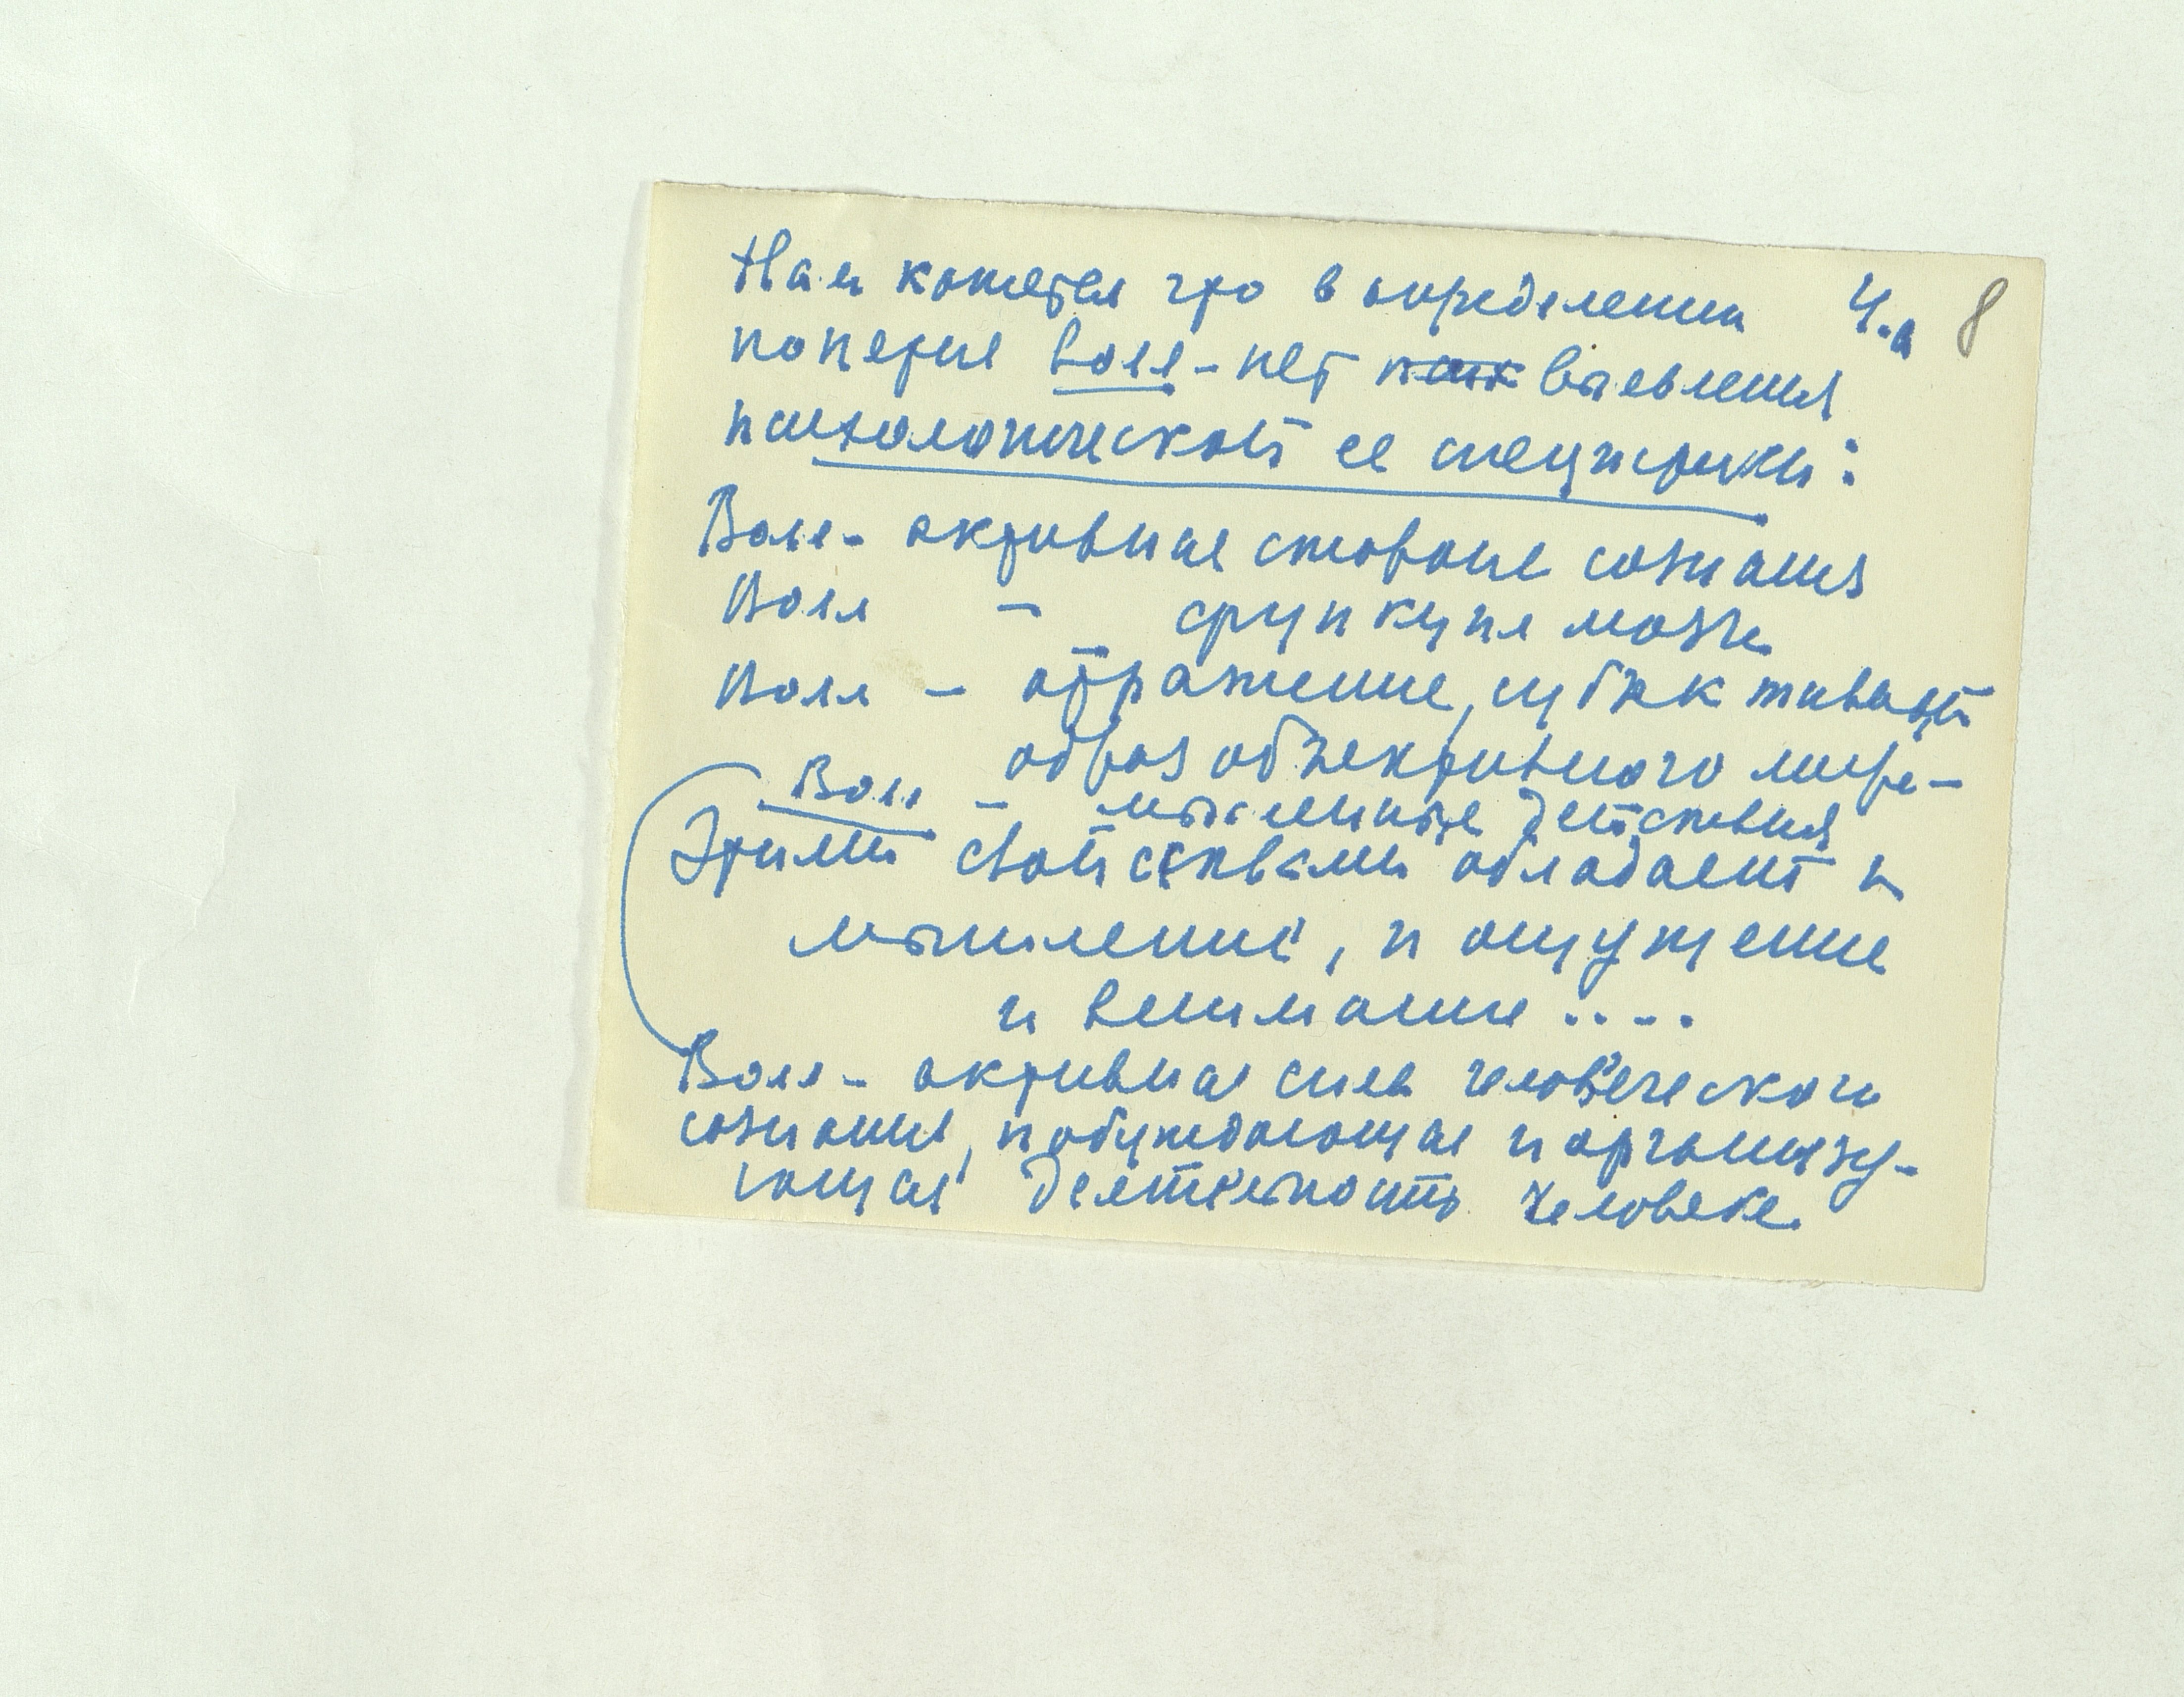 Нам кажется что в определении Ч.а 8
понятия воля - нет выявления
психологической ее специфики:
Воля - активная сторона сознания
Воля - функция мозга
Воля - отражение, субъективный
образ объективного мира -
Воля - мысленные действия
Этими свойствами обладает и
мышление, и ощущение
и внимание ....
Воля - активная сила человеческого
сознания, побуждающая и организу-
ющая деятельность человека.